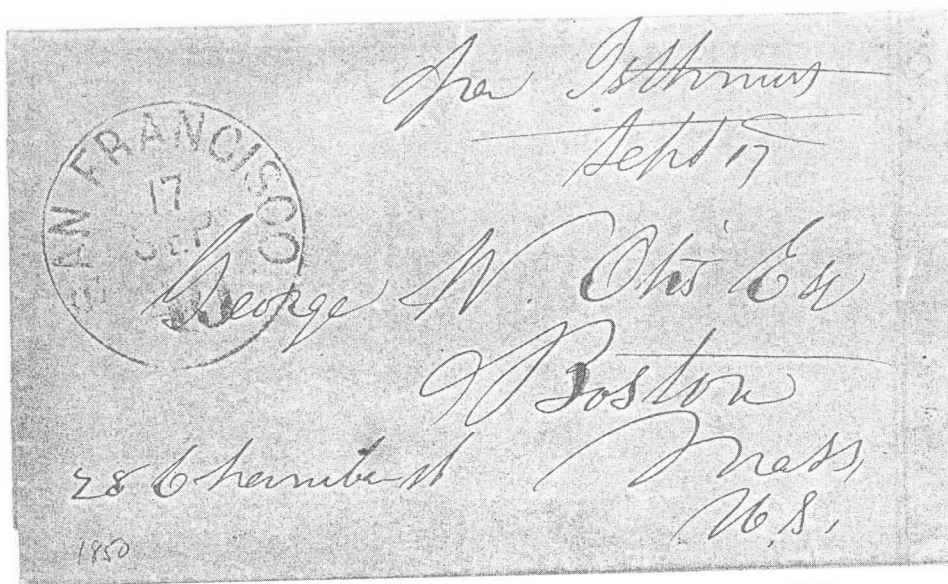 per Isthmus
Sept 17
SAN FRANCISCO
17
SEP
George W. Otis Esq
Boston
Mass,
U.S.
28 Chamber st
1850